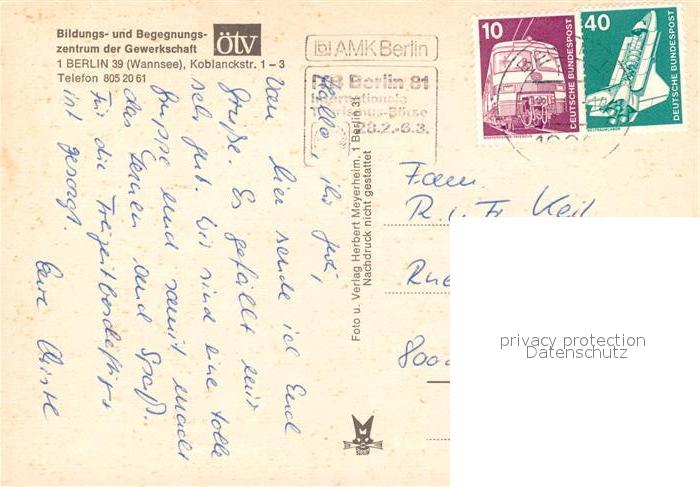 Bildungs- und Begegnungs-
zentrum der Gewerkschaft
ötv
1 BERLIN 39 (Wannsee), Koblanckstr. 1–3
Telefon 805 20 61
AMK Berlin
ITB Berlin 81
Internationale
Tourismus-Börse
28.2.-6.3.
10
DEUTSCHE BUNDESPOST
40
DEUTSCHE BUNDESPOST
Hallo, ihr
Von hier sende ich Euch
Grüße. Es gefällt mir
sehr gut. Wir sind eine tolle
Gruppe und somit macht
das Lernen auch Spaß.
Für die Freizeitbeschäftig.
ist gesorgt.
Eure
Foto u. Verlag Herbert Meyerheim, 1 Berlin 31
Nachdruck nicht gestattet
Fam.
R. u. Fr. Keil
8000
BERLIN
privacy protection
Datenschutz